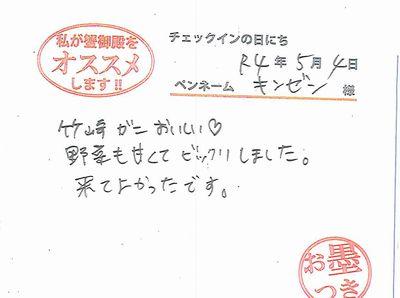 私が蟹御殿を
オススメ
します!!
チェックインの日にち
R4年5月4日
ペンネーム キンゼン 様
竹崎がにおいしい♡
野菜も甘くてビックリしました。
来てよかったです。
お墨
つき